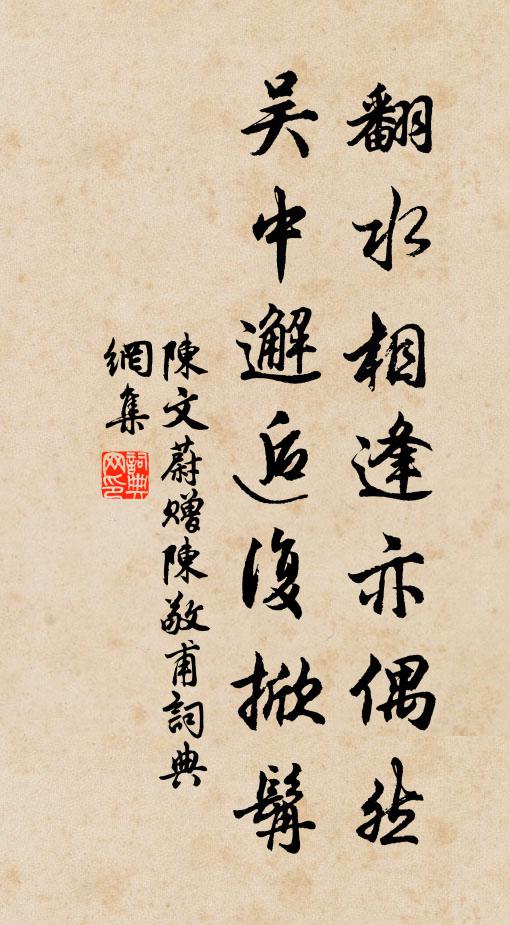 翻水相逢亦偶然
吴中邂逅復掀髯
陳文蔚贈陳敬甫詞典
網集
詞典网印